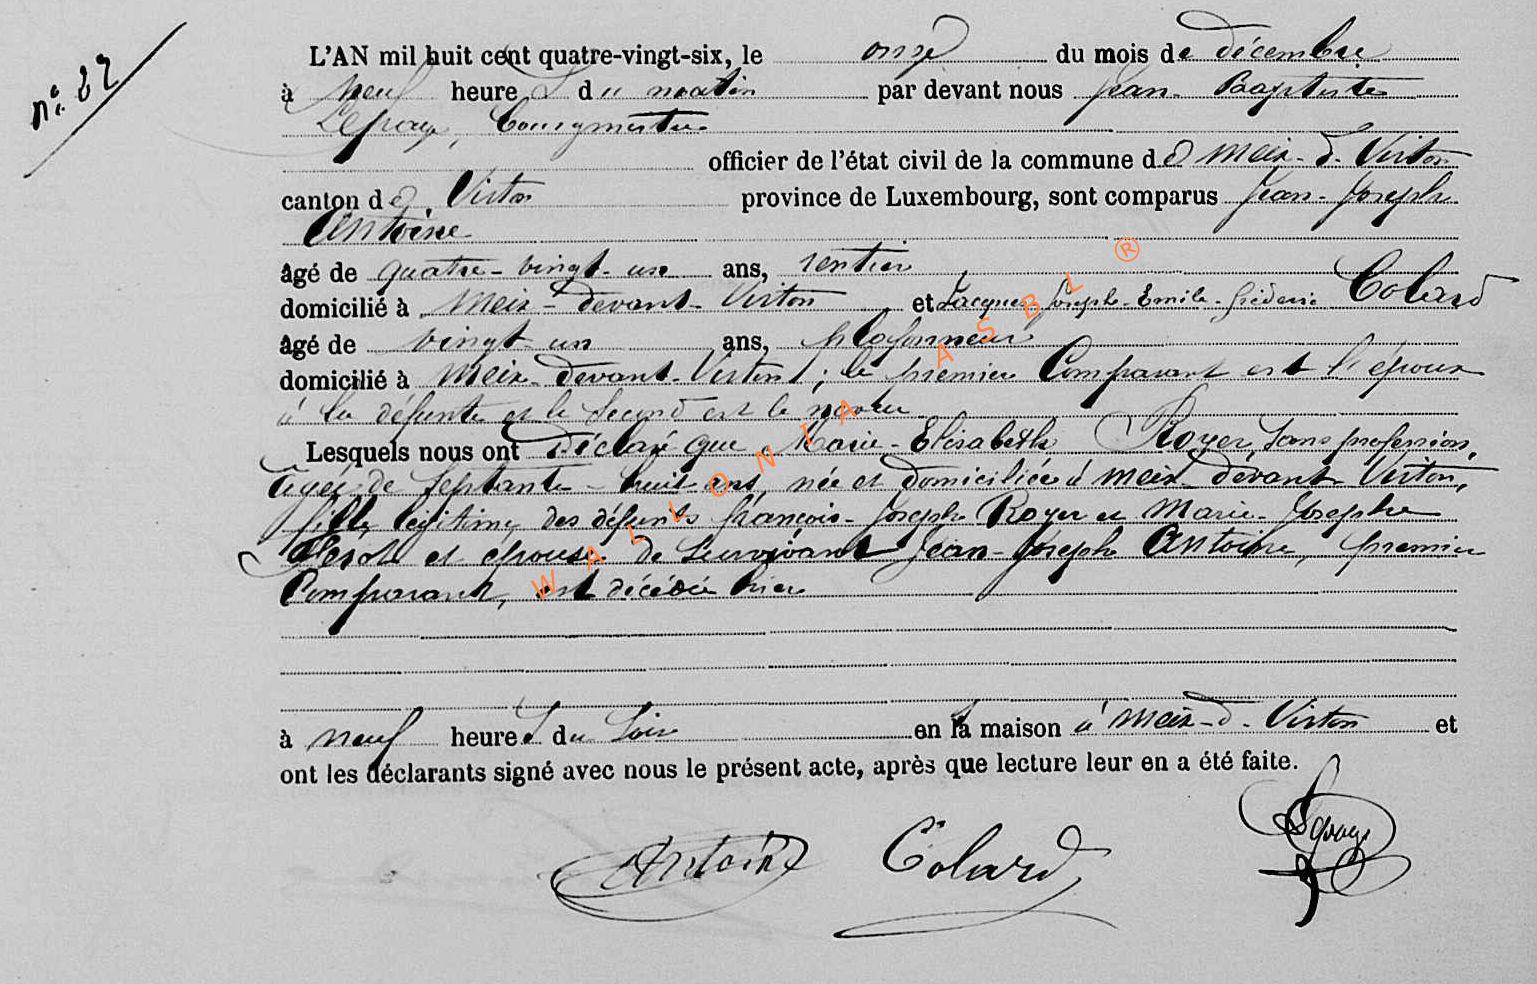 n° 37
L'AN mil huit cent quatre-vingt-six, le onze du mois de décembre
à neuf heures du matin par devant nous Jean-Baptiste
Lepage, Bourgmestre
officier de l'état civil de la commune de Meix-d-Virton
canton de Virton province de Luxembourg, sont comparus Jean-Joseph
Antoine
âgé de quatre-vingt-un ans, rentier
domicilié à Meix-devant-Virton et Jacques-Joseph-Emile-Fréderic Colard
âgé de vingt un ans, plafonneur
domicilié à Meix-devant-Virton; le premier Comparant est l'époux
à la défunte et le second est le neveu
Lesquels nous ont déclaré que Marie-Elisabeth Royer, sans profession,
âgée de septante-huit ans, née et domiciliée à Meix-devant-Virton,
fille légitime des défunts françois-Joseph Royer et Marie-Josephe
et épouse de survivant Jean-Joseph Antoine, premier
Comparant, est décédée hier
à neuf heures du soir en la maison à Meix-d-Virton et
ont les déclarants signé avec nous le présent acte, après que lecture leur en a été faite.
Antoine Colard Lepage
WALLONIA ASBL ®